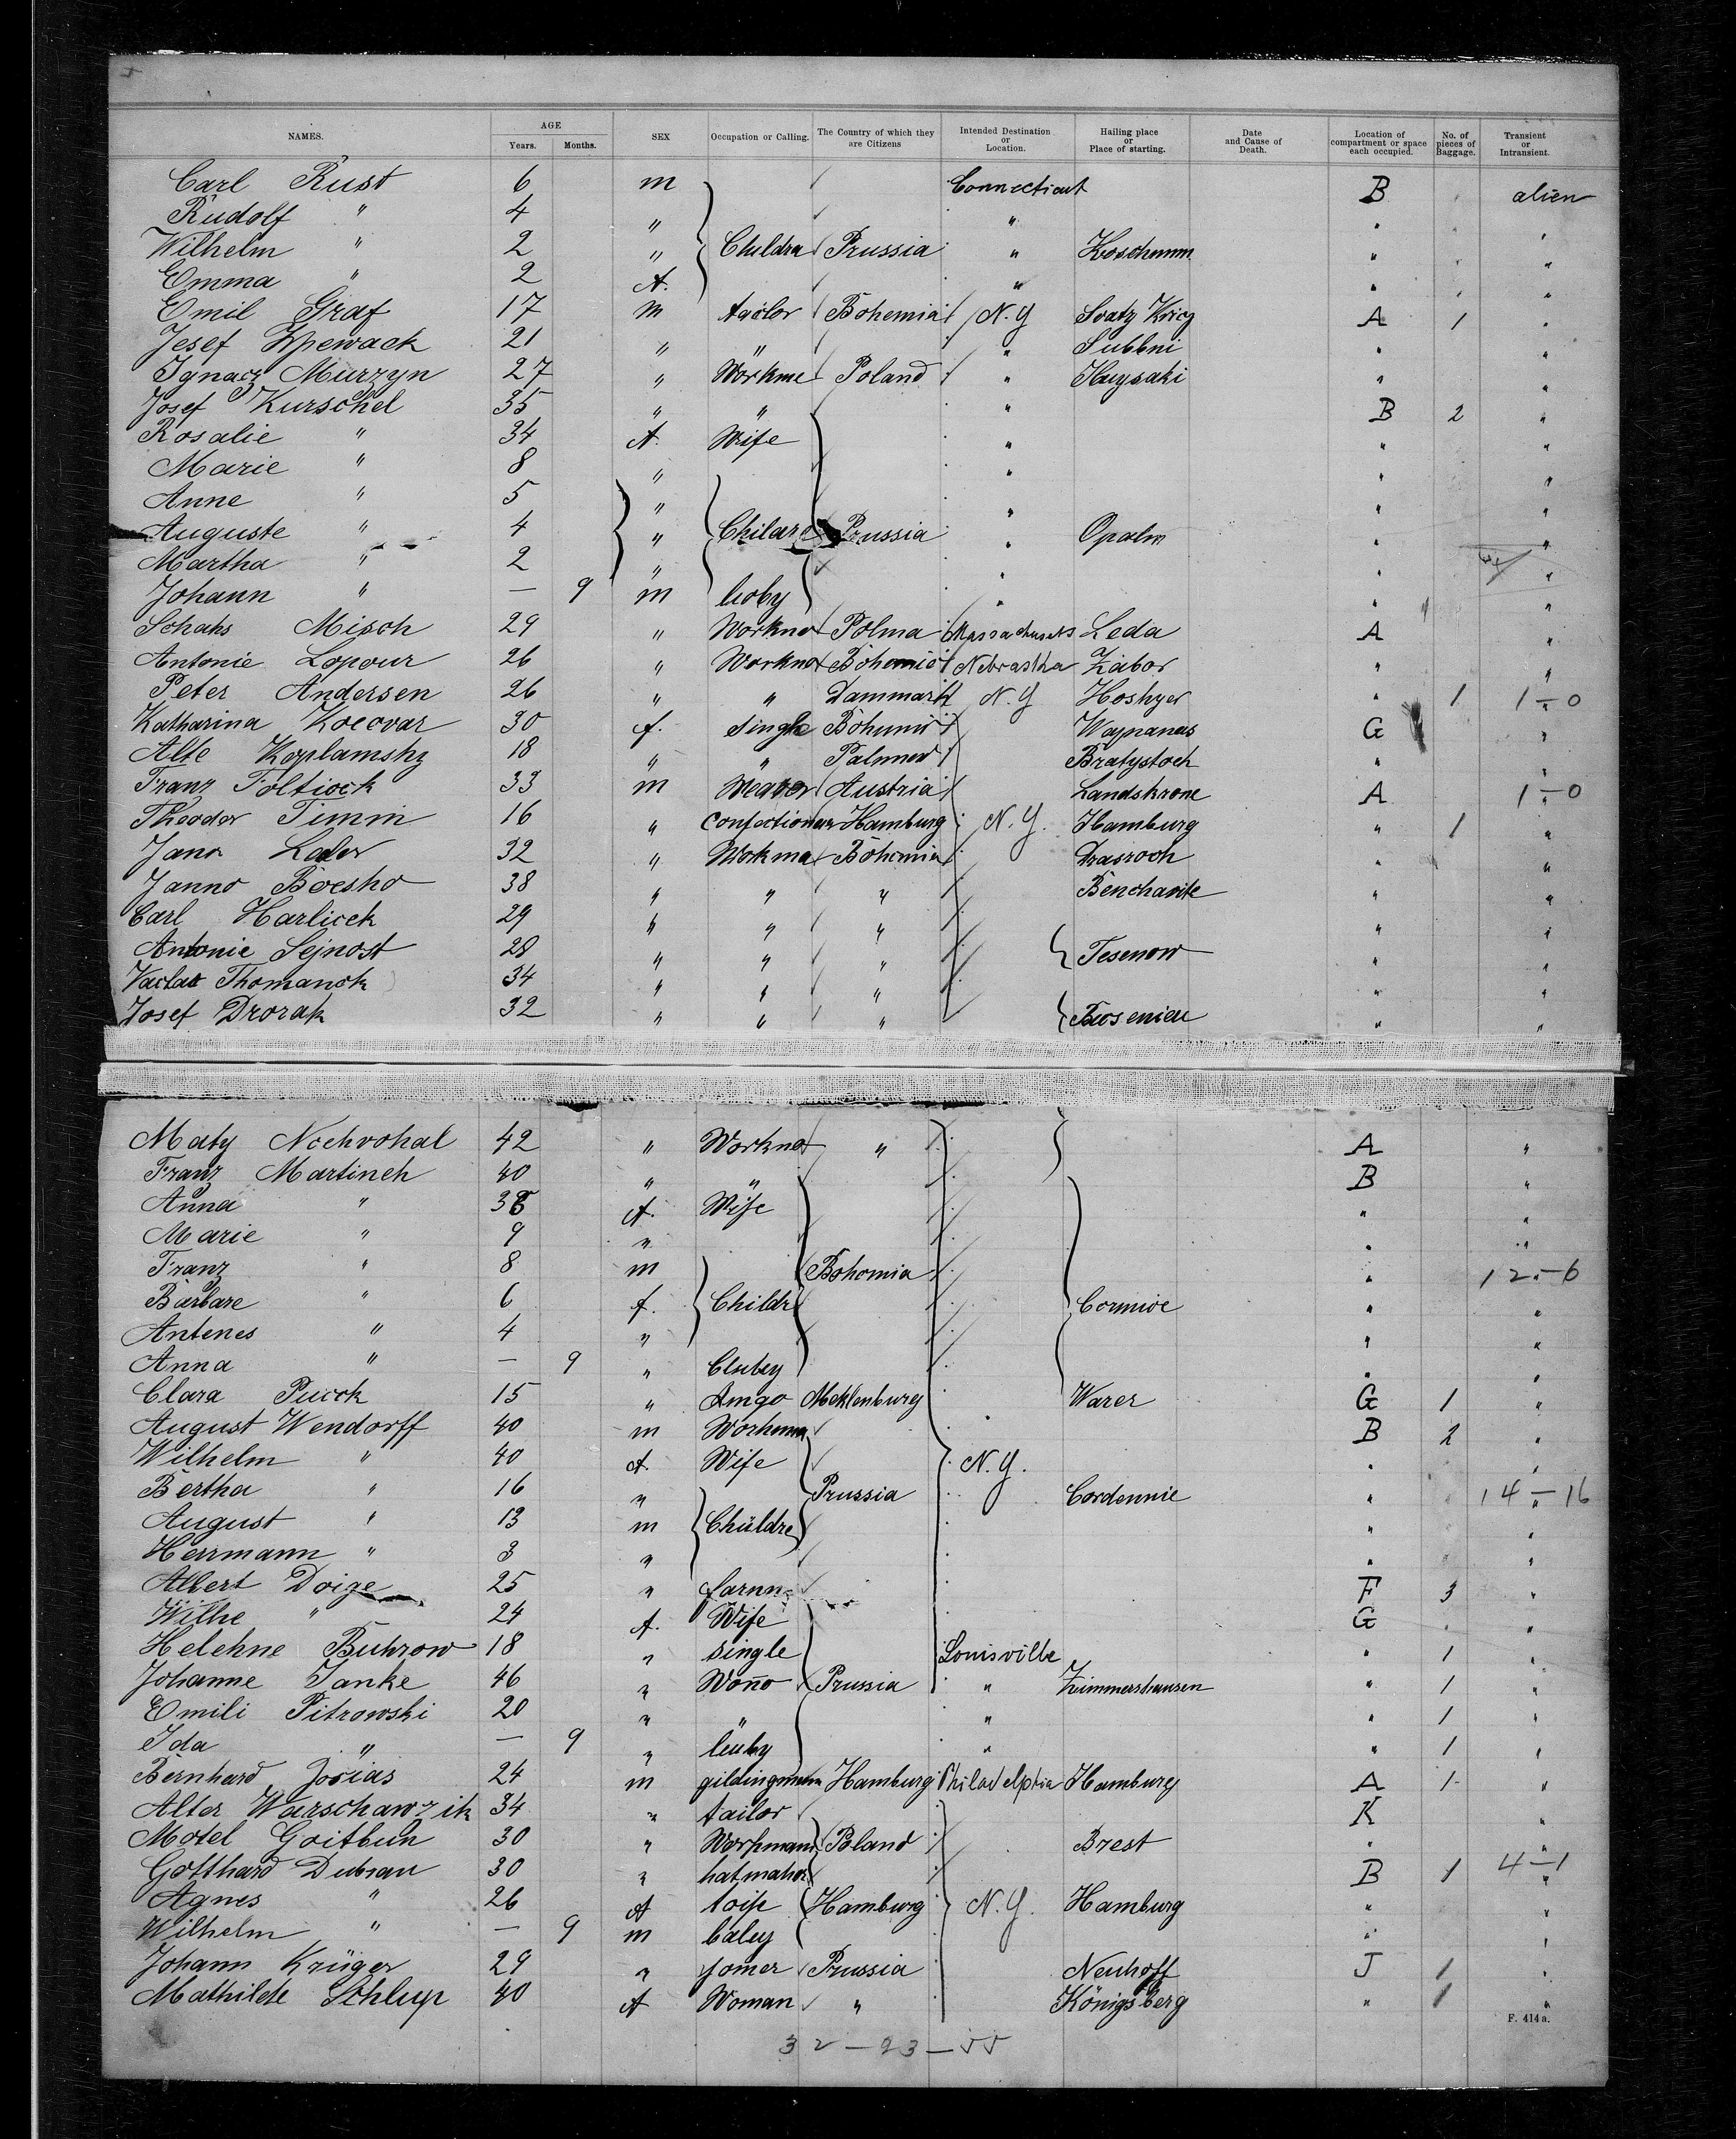 NAMES. AGE Years. Months. SEX Occupation or Calling. The Country of which they are Citizens Intended Destination or Location. Hailing place or Place of starting. Date and Cause of Death. Location of compartment or space each occupied. No. of pieces of Baggage. Transient or Intransient.
Carl Rust 6 m Connecticut B alien
Rudolf " 4 " " " "
Wilhelm " 2 " Childra Prussia " Koschmm " "
Emma " 2 f. " " "
Emil Graf 17 m tailor Bohemia N.Y Svatz Krig A 1 "
Josef Zpewack 21 " " " Subbni " "
Ignacz Murzyn 27 " Workme Poland " " "
Josef Kurschel 35 " " " B 2 "
Rosalie " 34 f. Wife " " "
Marie " 8 " " " "
Anne " 5 " " " "
Auguste " 4 " Childre Prussia " Opalm " "
Martha " 2 " " " "
Johann " — 9 m " " "
Schahs Misch 29 " Workno Polma Massachusets Leda A "
Antonie Lopour 26 " Workno Bohemio Nebrastka Zabor " "
Peter Andersen 26 " " Dammark N.Y Hoshyer " 1 1-0 "
Katharina Kocovar 30 f. single Bohumi Waynanas G "
Alte Koplamshy 18 " " Palmew Bratystoch " "
Franz Foltiock 33 m Weaver Austria Landskrone A 1-0 "
Theodor Timm 16 " Confectioner Hamburg N.Y. Hamburg " 1 "
Jano Lader 32 " Wokma Bohemia Drasroch " "
Janno Boesho 38 " " " Benchavite " "
Carl Harlicek 29 " " " " "
Antonie Sejnost 28 " " " Tesenow " "
Vaclat Thomanck 34 " " " " "
Josef Drorak 32 " " " " "
Maty Nechvohal 42 " Workno " A "
Franz Martineh 40 " " B "
Anna " 38 f. Wife " "
Marie " 9 " " "
Franz " 8 m Bohomia " 12-6 "
Barbare " 6 f. Childr Cormice " "
Antenes " 4 " " "
Anna " — 9 " " "
Clara Pucck 15 " Amgo Meklenburg " Warer G 1 "
August Wendorff 40 m Workmm B 2 "
Wilhelm " 40 f. Wife N.Y. " "
Bertha " 16 " Prussia Cordennie " 14-16 "
August " 13 m Childre " "
Herrmann " 3 " " "
Albert Doige 25 " farmn F 3 "
Wilhe " 24 f. Wife G "
Helehne Buhrow 18 " single Louisville " 1 "
Johanne Janke 46 " Woño Prussia " Zimmershausen " 1 "
Emili Pitrowski 20 " " " " 1 "
Ida " — 9 " " " 1 "
Bernhard Josias 24 m Hamburg Philadelphia Hamburg A 1 "
Alter Warschawzik 34 " tailor K "
Motel Goitbun 30 " Workmann Poland Brest " "
Gotthard Dubrau 30 " hatmaher B 1 4-1 "
Agnes " 26 f Hamburg N.Y. Hamburg " "
Wilhelm " — 9 m baby " "
Johann Krüger 29 " Prussia Neuhoff J 1 "
Mathilde Schlup 40 f Woman " Königsberg " 1 "
F. 414 a.
32 — 23 — 55